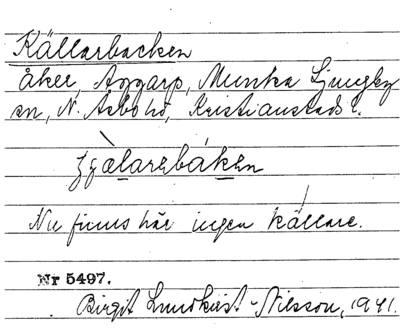 Källarbacken
åker, Aggarp, Munka Ljungby
sn, N. Åsbo hd, Kristianstads l.
Nu finns här ingen källare.
Nr 5497.
Birgit Lundkvist-Nilsson, 1941.